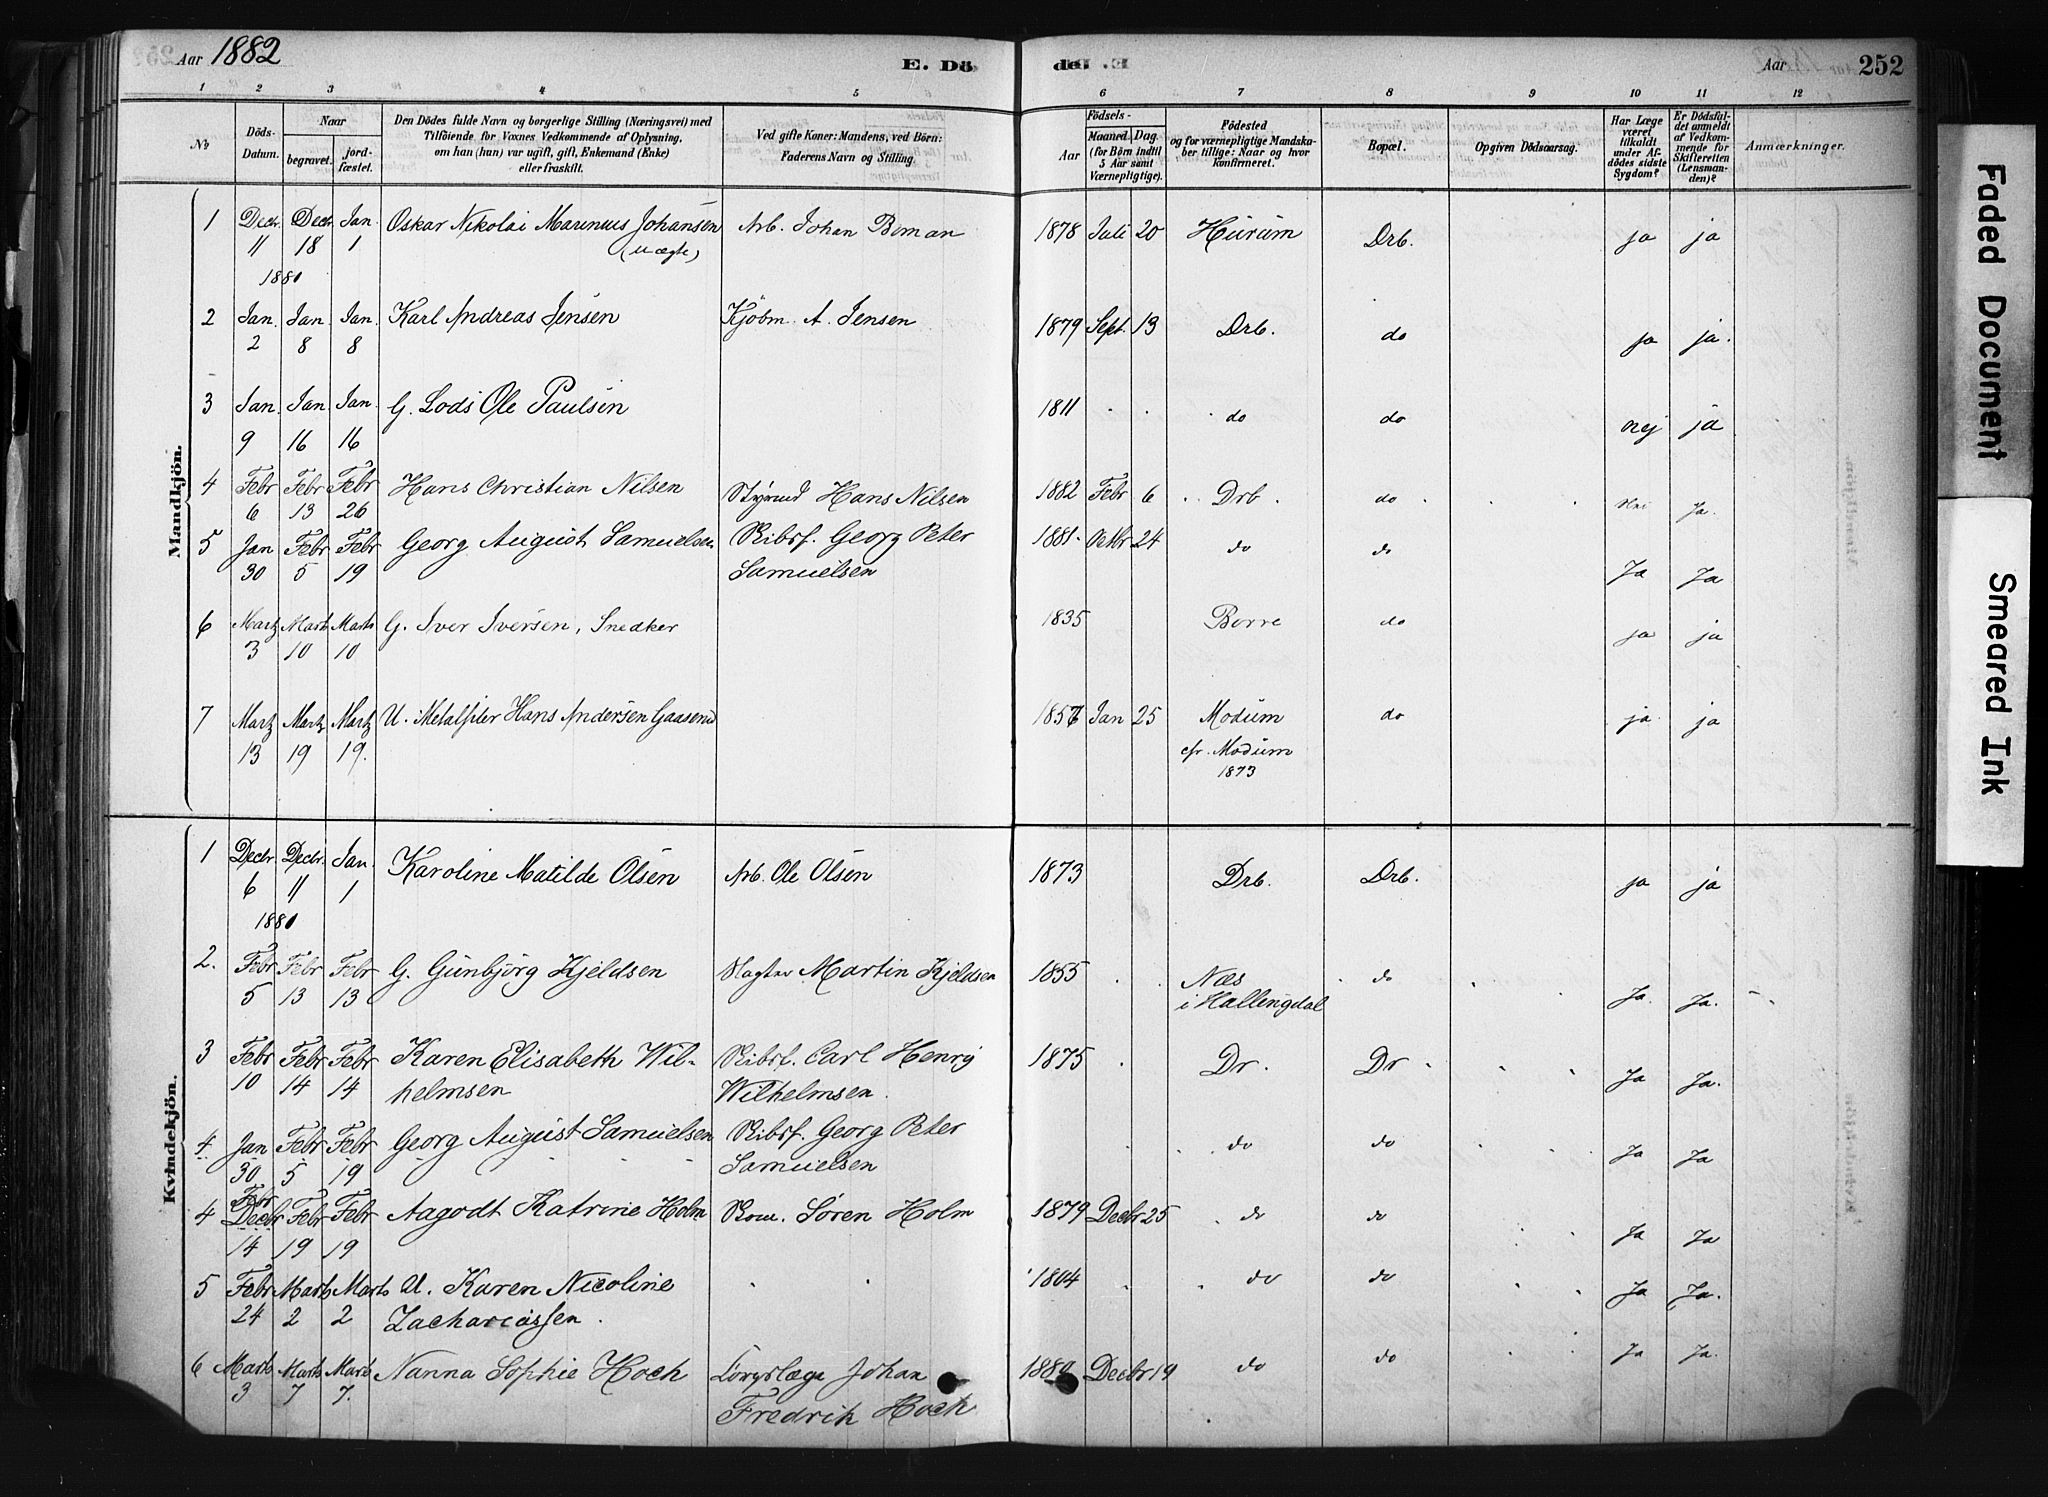 Aar 1882 E. Dö de. Aar 252
1 2 3 4 5 6 7 8 9 10 11 12
No
Döds-Datum.
Naar
begravet. jordfæstet.
Den Dödes fulde Navn og borgerlige Stilling (Næringsvei) med
Tilföiende for Voxnes Vedkommende af Oplysning,
om han (hun) var ugift, gift, Enkemand (Enke)
eller fraskilt.
Ved gifte Koner: Mandens, ved Börn:
Faderens Navn og Stilling.
Födsels-
Aar
Maaned. Dag.
(for Börn indtil
5 Aar samt
Værnepligtige).
Födested
og for værnepligtige Mandska-
ber tillige: Naar og hvor
konfirmeret.
Bopæl.
Opgiven Dödsaarsag.
Har Læge
været
tilkaldt
under Af-
dödes sidste
Sygdom?
Er Dödsfal-
det anmeldt
af Vedkom-
mende for
Skifteretten
(Lensman-
den)?
Anmærkninger.
Mandkjön.
1 Decbr. Decbr. Jan Oskar Nikolai Marinus Johansen Arb. Johan Boman 1878 Juli 20 Hurum Drb. ja ja
11 18 1 (uægte)
1881
2 Jan. Jan Jan Karl Andreas Jensen Kjöbm. A. Jensen 1879 Sept. 13 Drb. do ja ja.
2 8 8
3 Jan. Jan. Jan. G. Lods Ole Paulsen 1811 do do nej ja
9 16 16
4 Febr Febr Febr Hans Christian Nilsen Styrmd Hans Nilsen 1882 Febr 6 Drb. do Nei Ja.
6 13 26
5 Jan Febr Febr Georg August Samuelsen Skibsf. Georg Peter 1881 Octbr 24 do do
30 5 19 Samuelsen Ja Ja
6 Martz Marts Marts G. Iver Iversen, Snedker 1835 Borre do ja ja
3 10 10
7 Martz Martz Martz U. Metalfiler Hans Andersen Gaaserud 1857 Jan 25 Modum do ja ja
13 19 19. cfr. Modum
1873
Kvindekjön.
1 Decbr. Decbr. Jan. Karoline Matilde Olsen Arb. Ole Olsen 1873 Drb. Drb. ja ja
6 11 1
1881
2. Febr Febr Febr G. Gunbjörg Kjeldsen Slagter Martin Kjeldsen 1855 Næs do
5 13 13 i Hallingdal Ja Ja.
3 Febr Febr Febr Karen Elisabeth Wil- Skibsf. Carl Henry 1875 Dr. Dr
10 14 14 helmsen Wilhelmsen. Ja Ja.
4 Jan Febr Febr Georg August Samuelsen Skibsf. Georg Peter do do
30 5 19 Samuelsen Ja Ja
Febr
4 Decbr Febr Febr Aagodt Katrine Holm Søren Holm 1879 Decbr 25 do do
14 19 19 Ja Ja
5 Febr Marts Marts U. Karen Nicoline 1804 do do Ja Ja.
24 2 2 Zachariassen.
6 Marts Marts Marts Nanna Sophie Hoch Corpslæge Johan Decbr 19 do do Ja Ja.
3 7 7. Fredrik Hoch
Faded Document
Smeared Ink